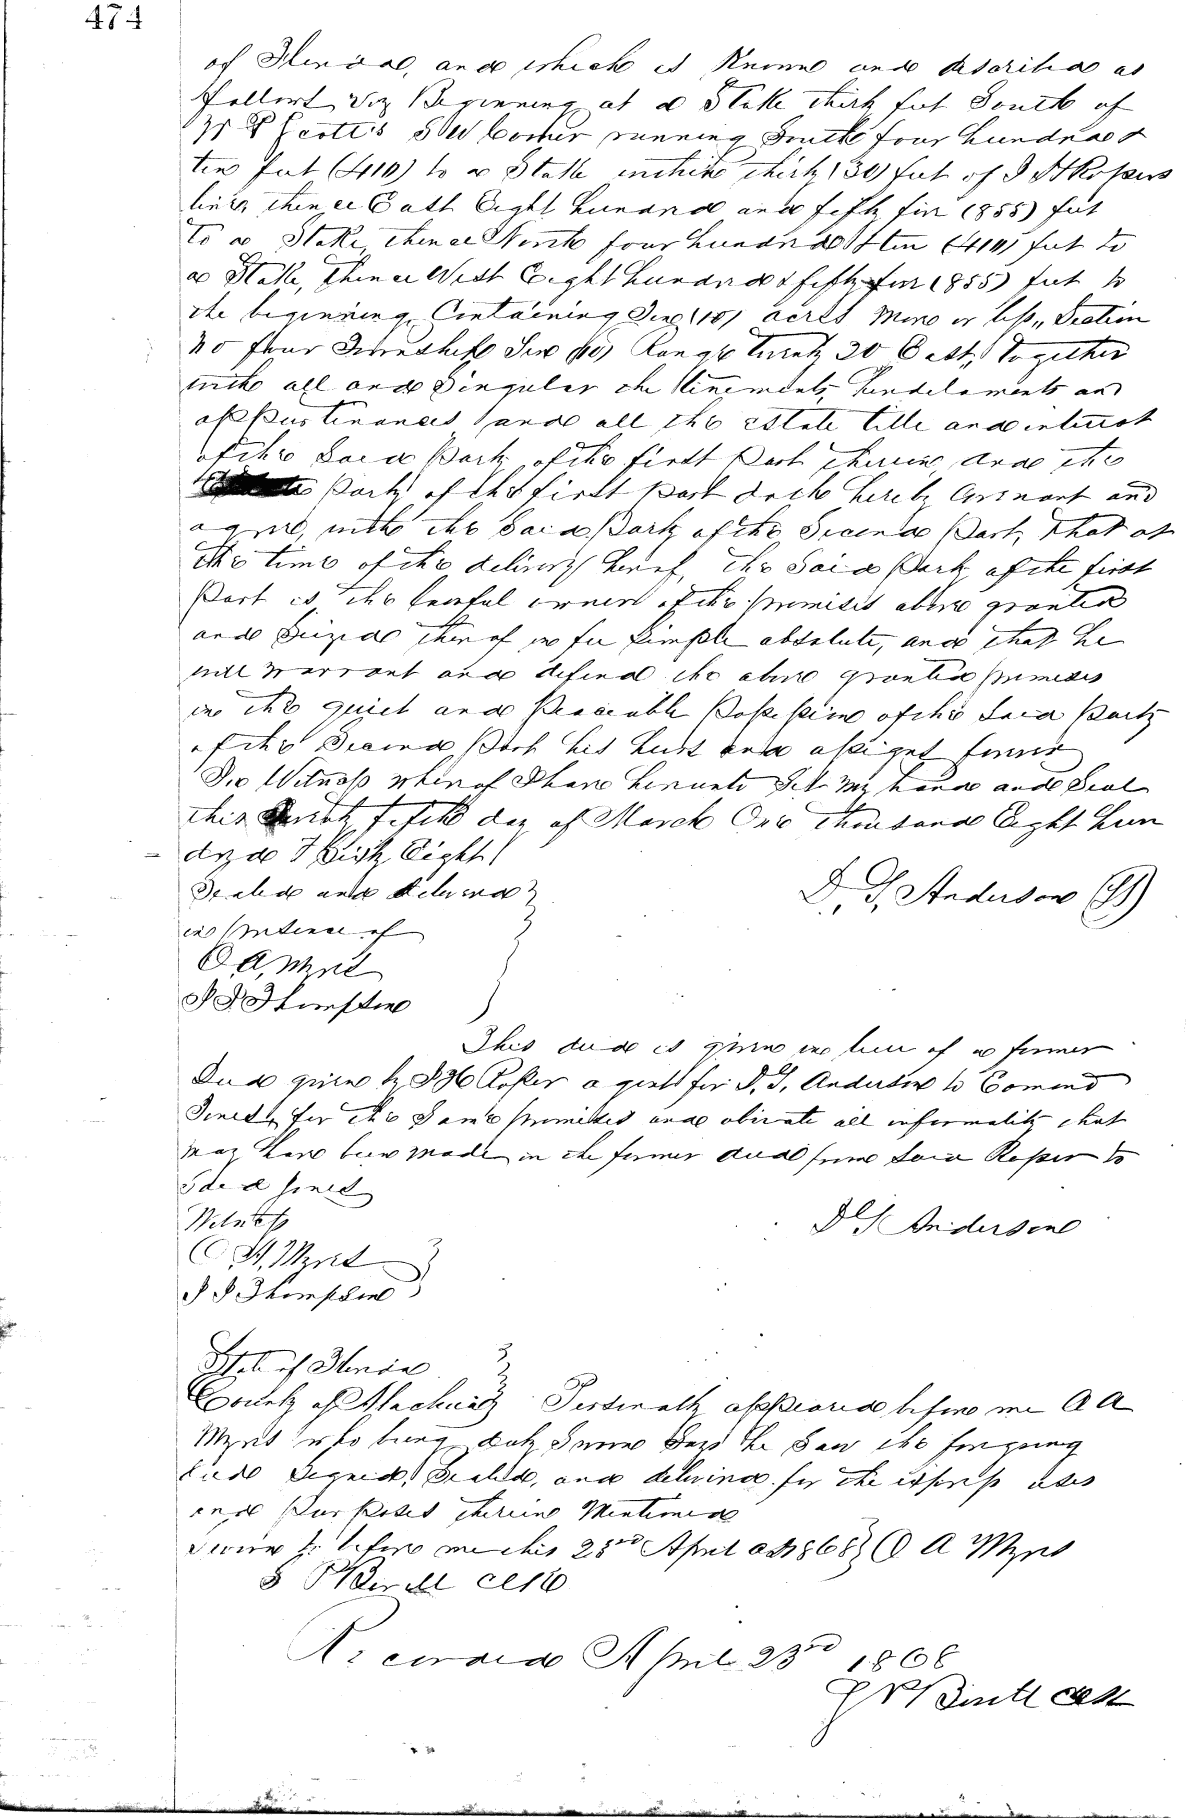 474
of Florida, and which is Known and described as
follows, Viz Beginning at a Stake thirty feet South of
Scott's S W Corner running South four hundred &
ten feet (410) to a Stake within thirty (30) feet of J H Ropers
line, thence East Eight hundred and fifty five (855) feet
to a Stake, thence North four hundred & ten (410) feet to
a Stake, thence West Eight hundred & fifty five (855) feet to
the beginning, Containing Ten (10) acres More or less, Section
No four Township Ten (10) Range twenty 20 East, Together
with all and Singular the tenements, hereditaments and
appurtenances, and all the estate title and interest
of the Said Party of the first Part therein, and the
Party of the first part doth hereby Covenant and
agree, with the Said Party of the Second Part, that at
the time of the delivery hereof, the Said Party of the first
Part is the lawful owner of the premises above granted
and Seized thereof in fee Simple absolute, and that he
will Warrant and defend the above granted premises
in the quiet and Peaceable Possession of the Said Party
of the Second Part his heirs and assigns forever
In Witness whereof I have hereunto Set my hand and Seal
this fifth day of March One thousand Eight hun
dred & Sixty Eight
Sealed and delivered
D. S. Anderson (LS)
in presence of
O. A. Myers
J J Thompson
This deed is given in lieu of a former
Deed given by J H Roper agent for D. S. Anderson to
Jones, for the Same premises and obviate all informality that
may have been made in the former deed from Said Roper to
Said Jones
Witness
D S Anderson
A. Myers
J J Thompson
State of Florida
County of Alachua Personally appeared before me O A
Myers who being duly Sworn Says he Saw the foregoing
deed Signed, Sealed, and delivered for the express uses
and Purposes therein Mentioned
Sworn to before me this 23rd April AD 1868 O A Myers
Clk
Recorded April 23rd 1868
Clk